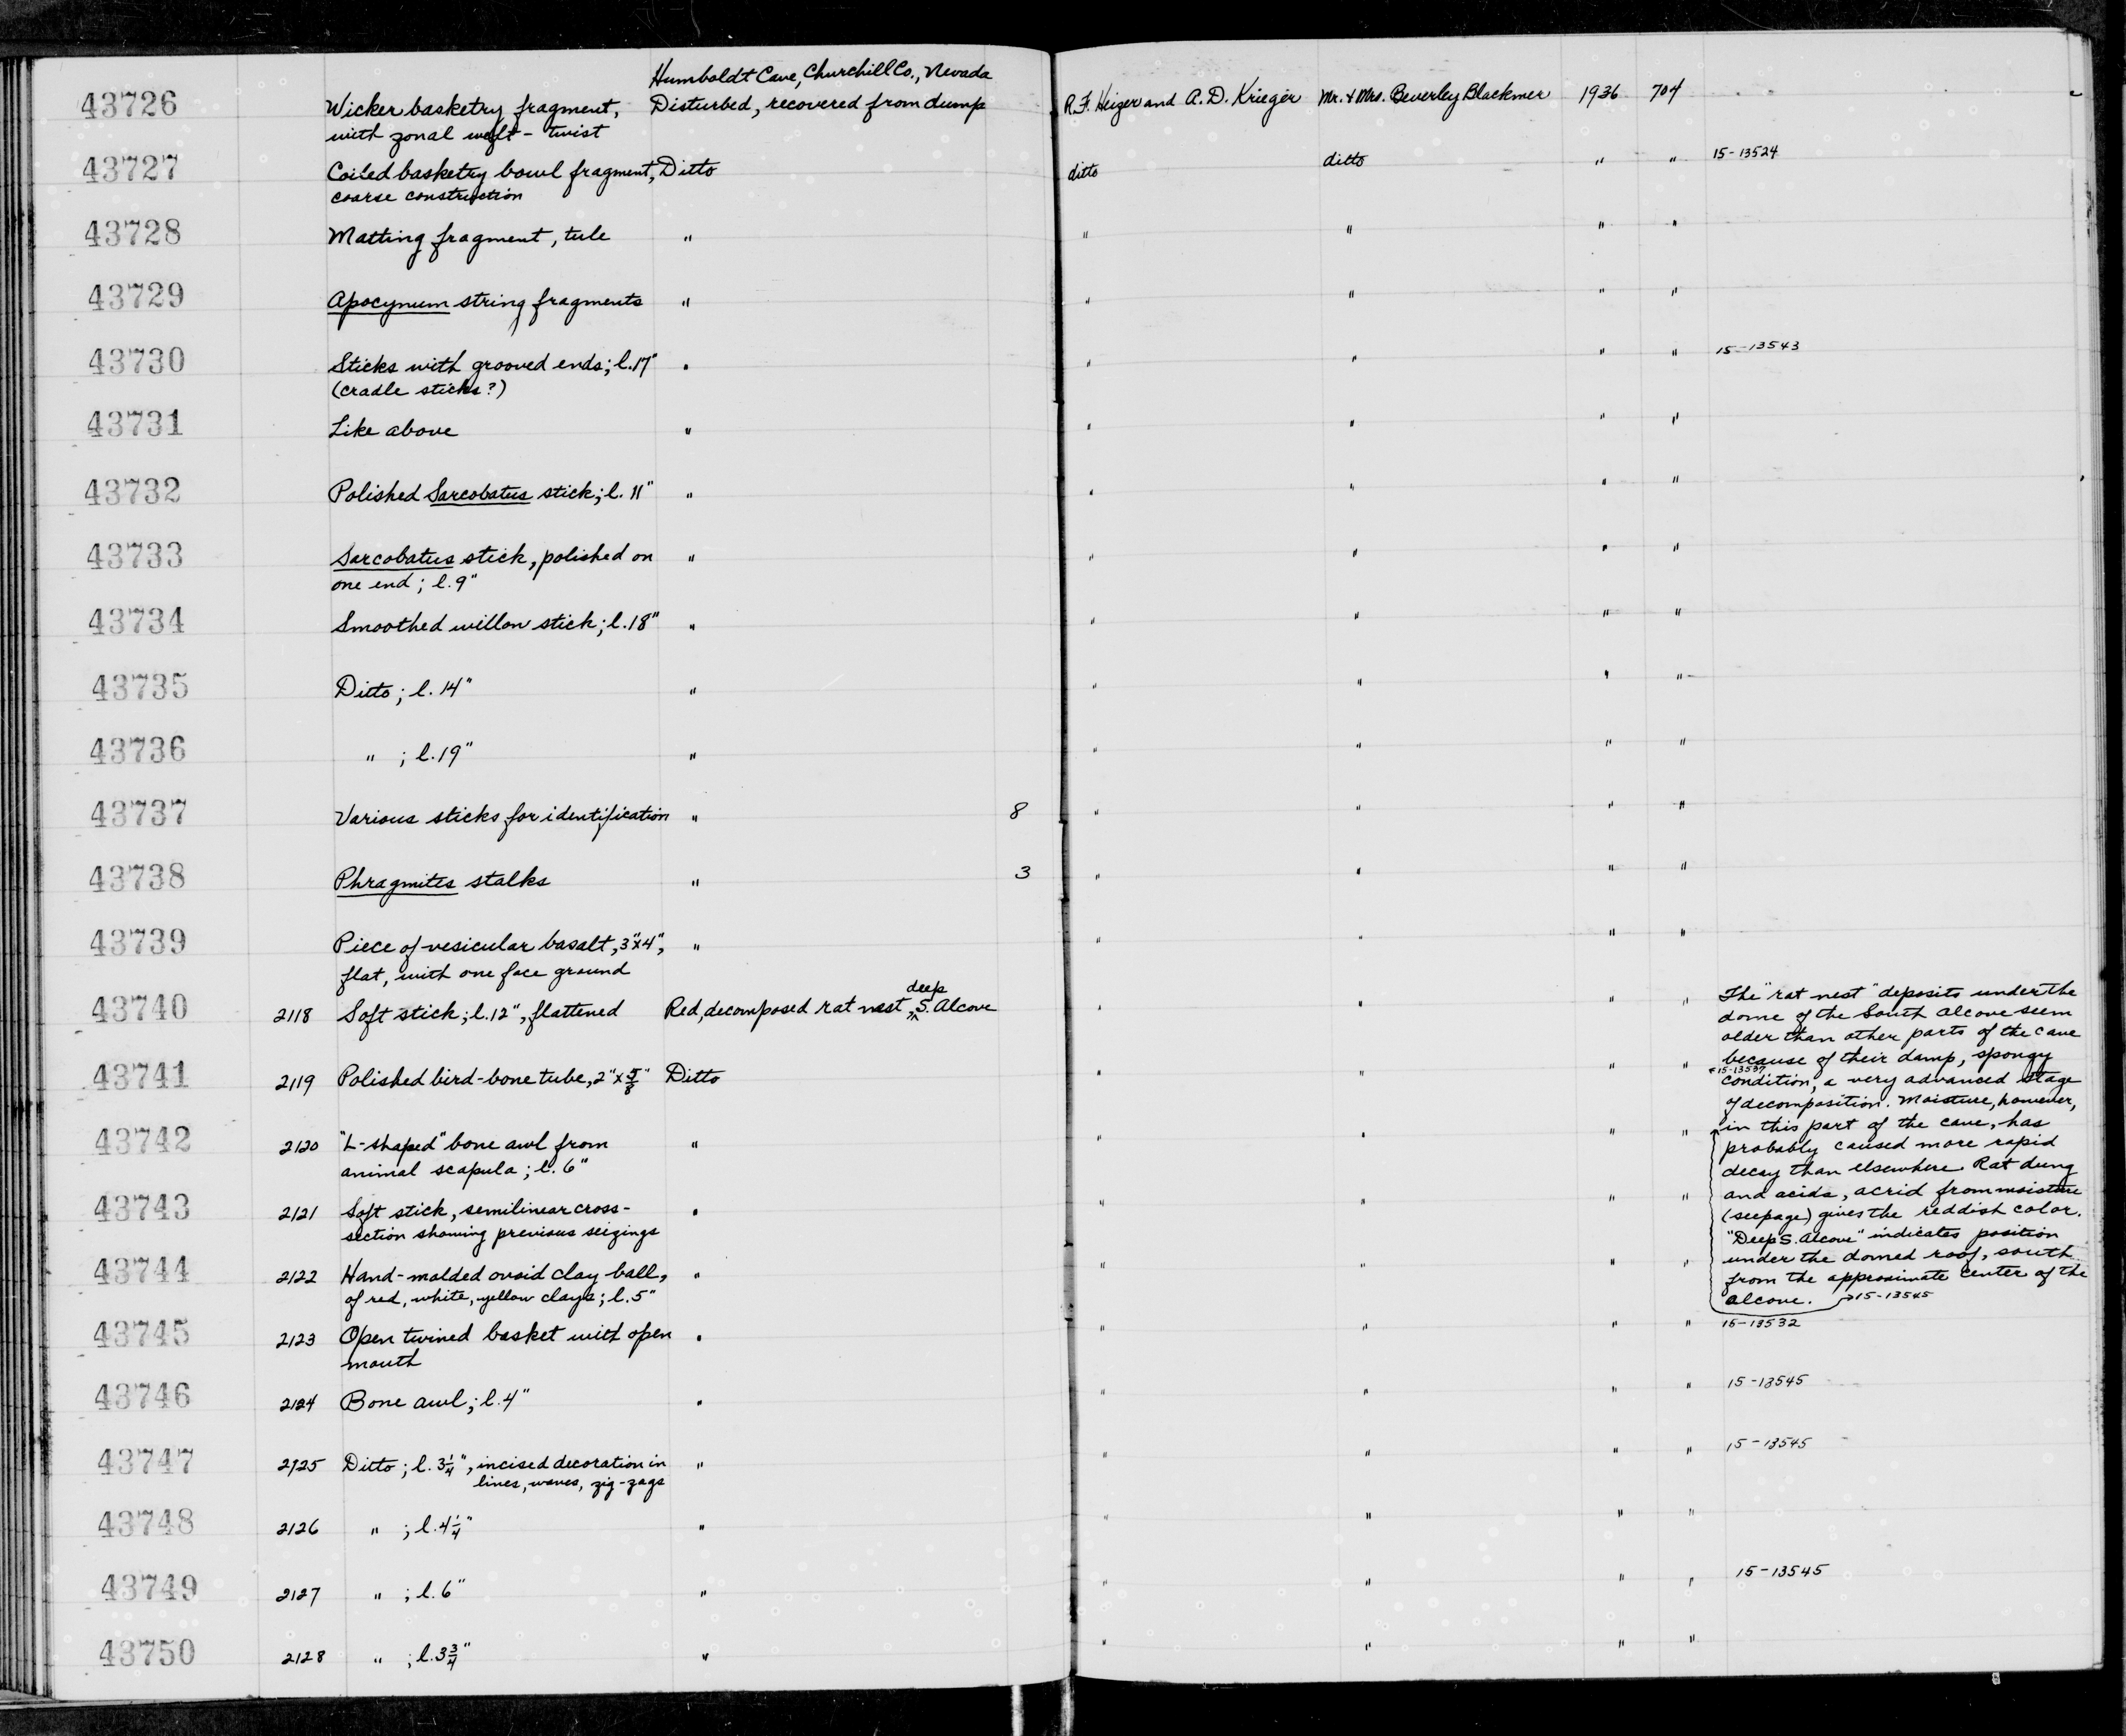 Humboldt Cave, Churchill Co., Nevada
43726 Wicker basketry fragment, Disturbed, recovered from dump R.F. Heizer and A.D. Krieger Mr. & Mrs. Beverley Blackmer 1936 704
with zonal weft-twist
43727 Coiled basketry bowl fragment, Ditto ditto ditto " " 15-13524
coarse construction
43728 Matting fragment, tule " " " " "
43729 Apocynum string fragments " " " " "
43730 Sticks with grooved ends; l. 17" " " " " " 15-13543
(cradle sticks?)
43731 Like above " " " " "
43732 Polished Sarcobatus stick; l. 11" " " " " "
43733 Sarcobatus stick, polished on " " " " "
one end; l. 9"
43734 Smoothed willow stick; l. 18" " " " " "
43735 Ditto; l. 14" " " " " "
43736 " ; l. 19" " " " " "
43737 Various sticks for identification " 8 " " " "
43738 Phragmites stalks " 3 " " " "
43739 Piece of vesicular basalt, 3"x4", " " " " "
flat, with one face ground
43740 2118 Soft stick; l. 12", flattened Red, decomposed rat nest, deep S. Alcove " " " "
43741 2119 Polished bird-bone tube, 2"x 5/8" Ditto " " " " 15-13537
43742 2120 "L-shaped" bone awl from " " " " "
animal scapula; l. 6"
43743 2121 Soft stick, semilinear cross- " " " " "
section showing previous seizings
43744 2122 Hand-molded ovoid clay ball, " " " " "
of red, white, yellow clays; l. 5"
The "rat nest" deposits under the
dome of the South Alcove seem
older than other parts of the cave
because of their damp, spongy
condition, a very advanced stage
of decomposition. Moisture, however,
in this part of the cave, has
probably caused more rapid
decay than elsewhere. Rat dung
and acids, acrid from moisture
(seepage) gives the reddish color.
"Deep S. Alcove" indicates position
under the domed roof, south
from the approximate center of the
alcove. 15-13545
43745 2123 Open twined basket with open " " " " " 15-13532
mouth
43746 2124 Bone awl; l. 4" " " " " " 15-13545
43747 2125 Ditto; l. 3 1/4", incised decoration in " " " " " 15-13545
lines, waves, zig-zags
43748 2126 " ; l. 4 1/4" " " " " "
43749 2127 " ; l. 6" " " " " " 15-13545
43750 2128 " ; l. 3 3/4" " " " " "